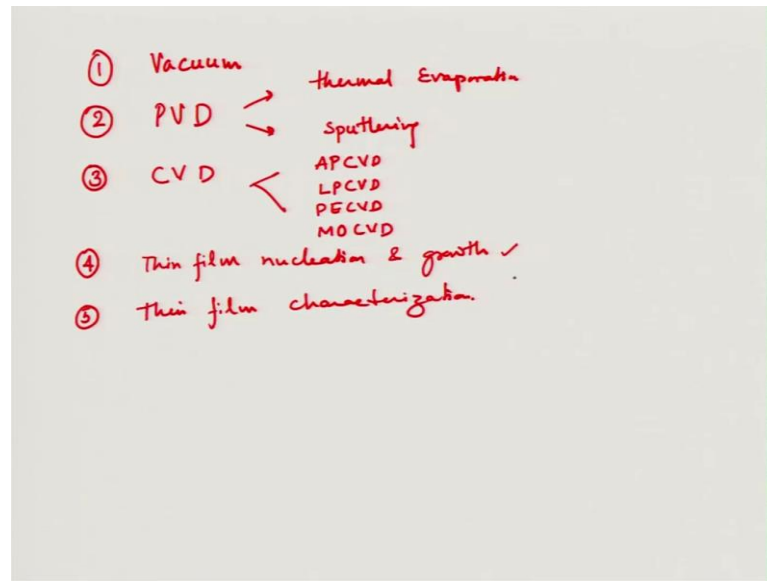 ① Vacuum
thermal Evaporation
② PVD
sputtering
③ CVD
APCVD
LPCVD
PECVD
MOCVD
④ Thin film nucleation & growth ✓
⑤ Thin film characterization.